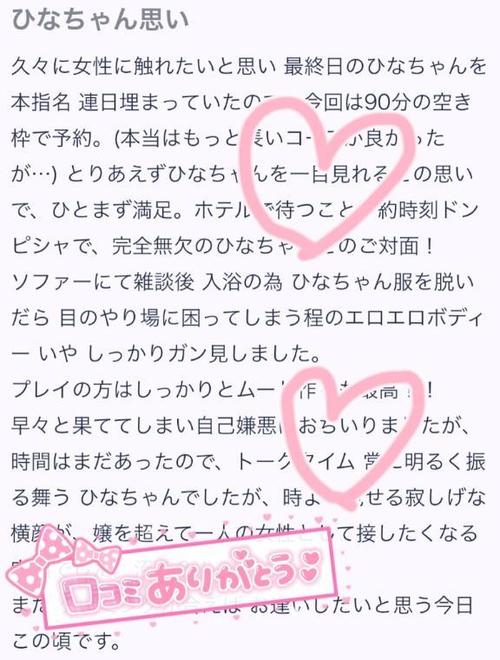 ひなちゃん思い
久々に女性に触れたいと思い 最終日のひなちゃんを
本指名 連日埋まっていたの 今回は90分の空き
枠で予約。(本当はもっと長いコースが良かった
が…) とりあえずひなちゃんを一目見れるこの思い
で、ひとまず満足。ホテルで待つこと 約時刻ドン
ピシャで、完全無欠のひなちゃ このご対面！
ソファーにて雑談後 入浴の為 ひなちゃん服を脱い
だら 目のやり場に困ってしまう程のエロエロボディ
ー いや しっかりガン見しました。
プレイの方はしっかりとムー 作 も最高！！
早々と果ててしまい自己嫌悪におちいりましたが、
時間はまだあったので、トークタイム 常に明るく振
る舞う ひなちゃんでしたが、時よ せる寂しげな
横顔が、嬢を超えて一人の女性として接したくなる
口コミありがとう
また お逢いしたいと思う今日
この頃です。